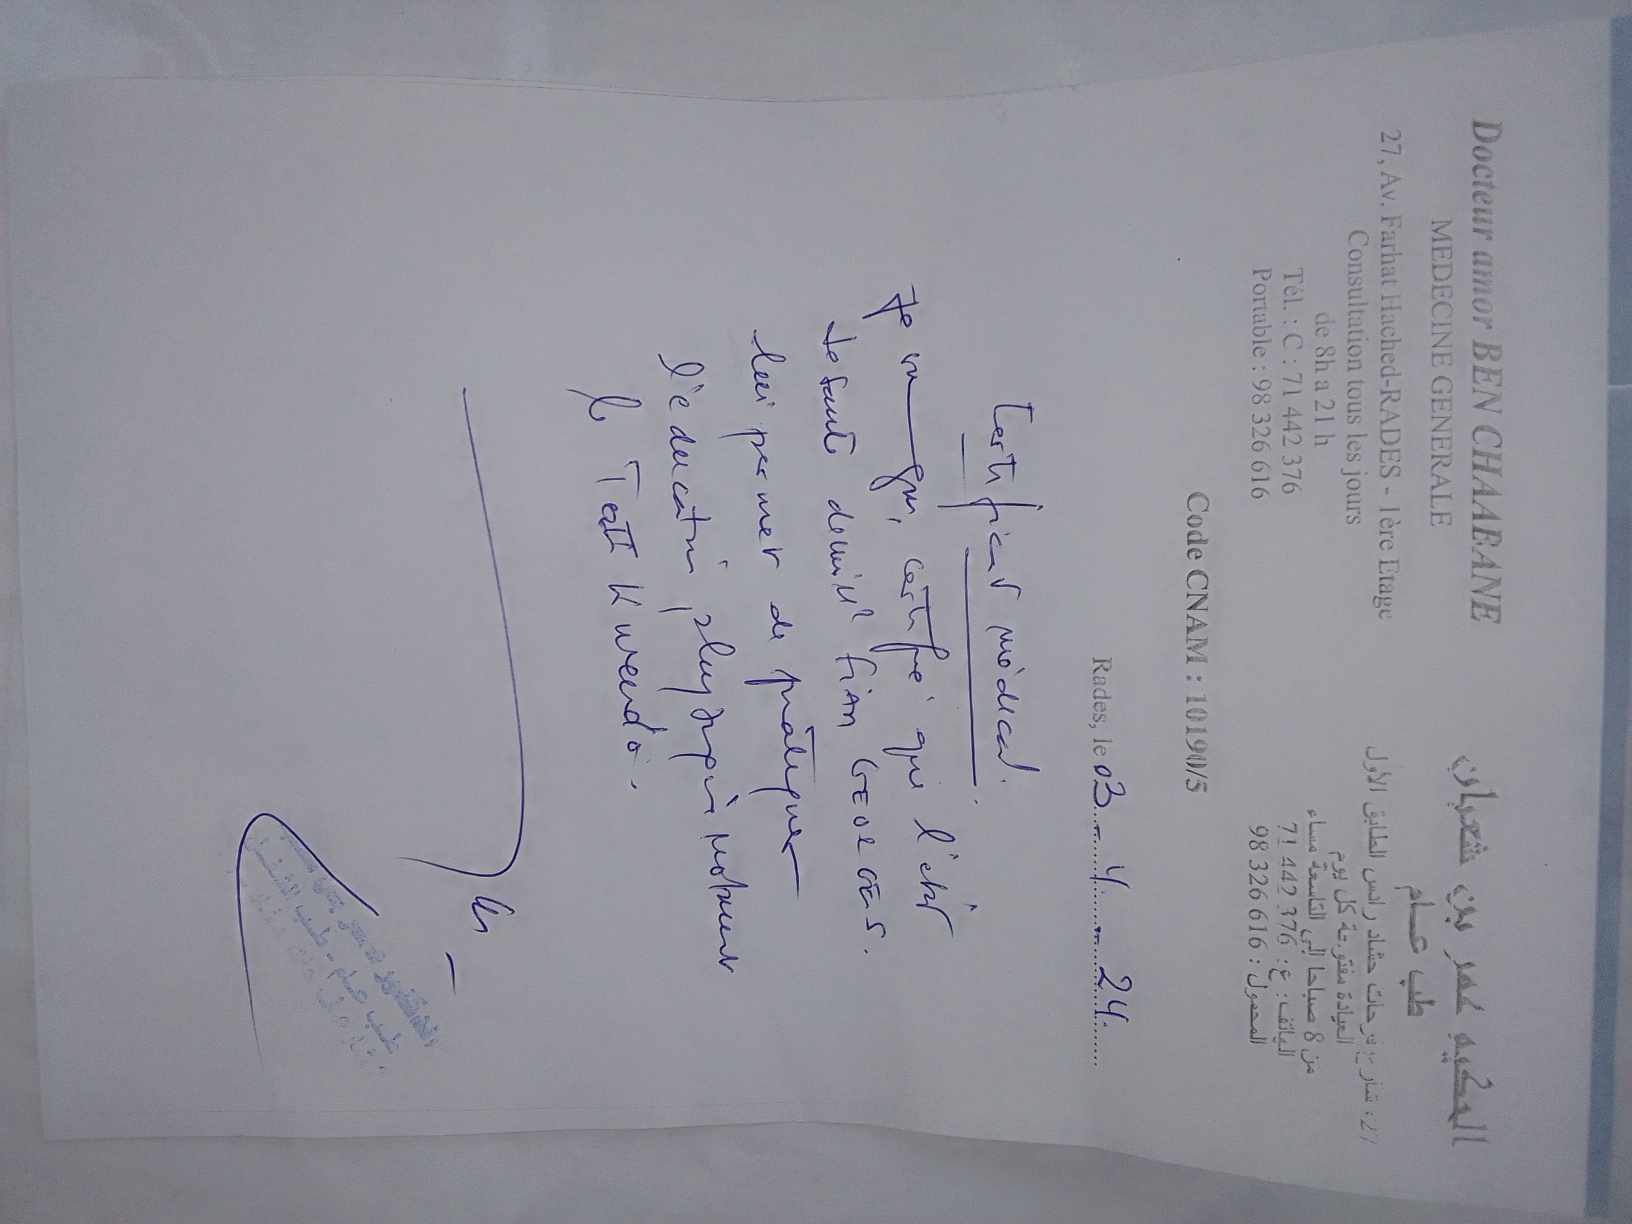 Docteur amor BEN CHAABANE
MEDECINE GENERALE
27, Av. Farhat Hached-RADES - 1ère Etage
Consultation tous les jours
de 8h a 21 h
Tél. : C : 71 442 376
Portable : 98 326 616
الحكيم عمر بن شعبان
طب عام
27، شارع فرحات حشاد رادس الطابق الأول
العيادة مفتوحة كل يوم
من 8 صباحا إلى التاسعة مساء
الهاتف : ع : 71 442 376
المحمول : 98 326 616
Code CNAM : 10190/5
Rades, le 03 4 24.
Certificat médical.
Je certifie que l'état
de santé de
lui permet de pratiquer
l'éducation physique
le